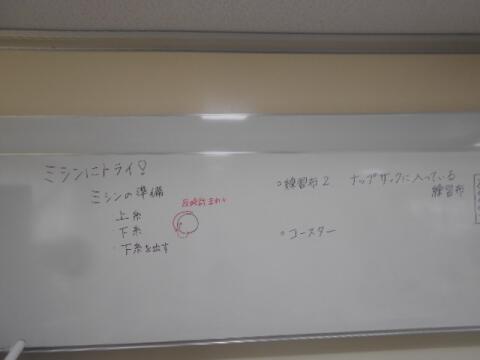 ミシンにトライ!
ミシンの準備
上糸
下糸
下糸を出す
反時計まわり
○練習布2 ナップザックに入っている
練習布
○コースター